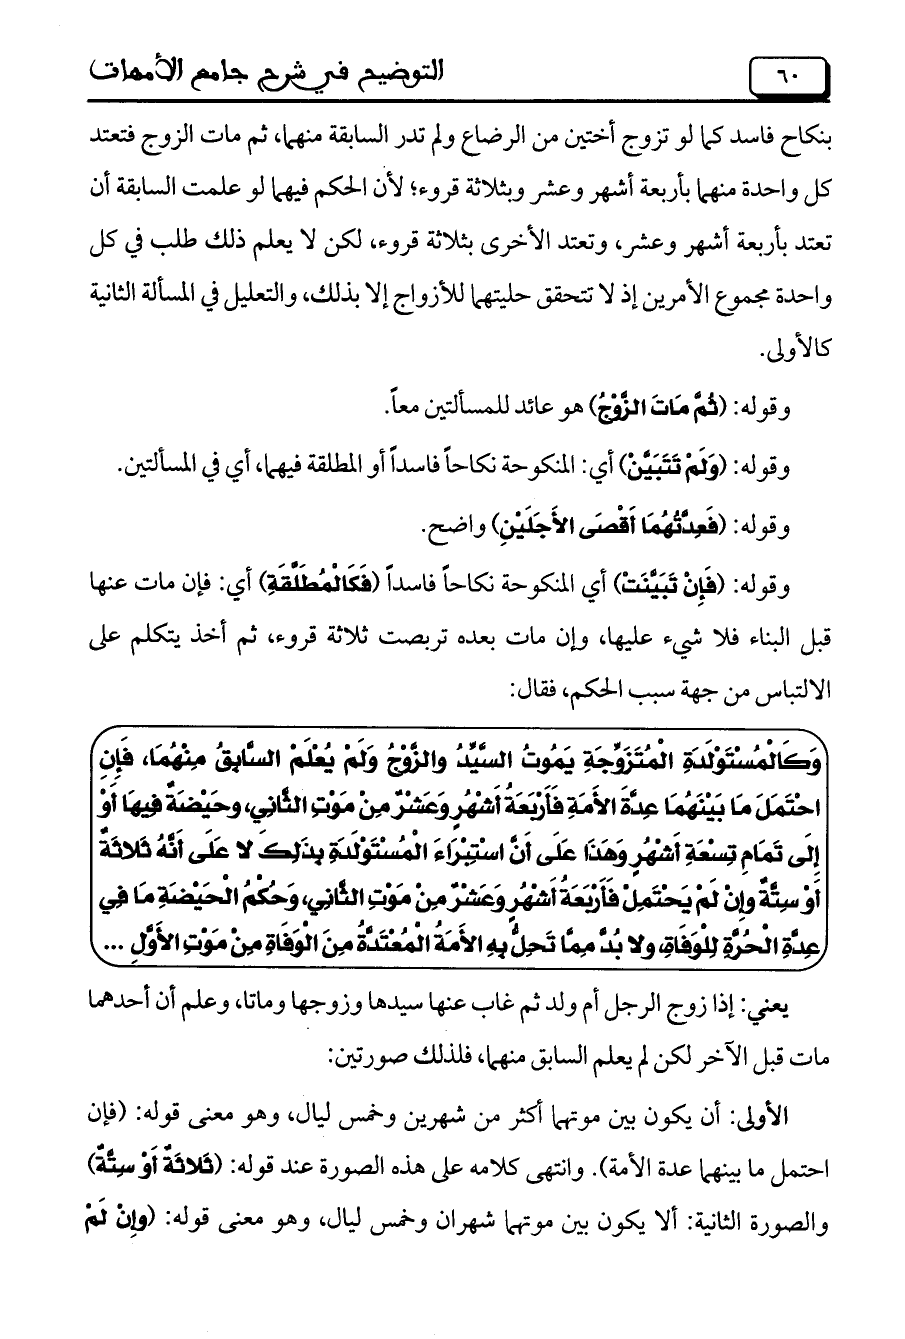 ٦٠ التوضيح في شرح جامع الأمهات
بنكاح فاسد كما لو تزوج أختين من الرضاع ولم تدر السابقة منهما، ثم مات الزوج فتعتد
كل واحدة منهما بأربعة أشهر وعشر وبثلاثة قروء؛ لأن الحكم فيهما لو علمت السابقة أن
تعتد بأربعة أشهر وعشر، وتعتد الأخرى بثلاثة قروء، لكن لا يعلم ذلك طلب في كل
واحدة مجموع الأمرين إذ لا تتحقق حليتهما للأزواج إلا بذلك، والتعليل في المسألة الثانية
كالأولى.
وقوله: (ثُمَّ مَاتَ الزَّوْجُ) هو عائد للمسألتين معاً.
وقوله: (وَلَمْ تَتَبَيَّنْ) أي: المنكوحة نكاحاً فاسداً أو المطلقة فيهما، أي في المسألتين.
وقوله: (فَعِدَّتُهُمَا أَقْصَى الأَجَلَيْنِ) واضح.
وقوله: (فَإِنْ تَبَيَّنَتْ) أي المنكوحة نكاحاً فاسداً (فَكَالْمُطَلَّقَةِ) أي: فإن مات عنها
قبل البناء فلا شيء عليها، وإن مات بعده تربصت ثلاثة قروء، ثم أخذ يتكلم على
الالتباس من جهة سبب الحكم، فقال:
وَكَالْمُسْتَوْلَدَةِ الْمُتَزَوِّجَةِ يَمُوتُ السَّيِّدُ والزَّوْجُ وَلَمْ يُعْلَمْ السَّابِقُ مِنْهُمَا، فَإِنِ
احْتَمَلَ مَا بَيْنَهُمَا عِدَّةَ الأَمَةِ فَأَرْبَعَةُ أَشْهُرٍ وَعَشْرٌ مِنْ مَوْتِ الثَّانِي، وحَيْضَةٌ فِيهَا أَوْ
إِلَى تَمَامِ تِسْعَةِ أَشْهُرٍ وَهَذَا عَلَى أَنَّ اسْتِبْرَاءَ الْمُسْتَوْلَدَةِ بِذَلِكَ لا عَلَى أَنَّهُ ثَلاثَةٌ
أَوْ سِتَّةٌ وإِنْ لَمْ يَحْتَمِلْ فَأَرْبَعَةُ أَشْهُرٍ وَعَشْرٌ مِنْ مَوْتِ الثَّانِي، وَحُكْمُ الْحَيْضَةِ مَا فِي
عِدَّةِ الْحُرَّةِ لِلْوَفَاةِ، ولا بُدَّ مِمَّا تَحِلُّ بِهِ الأَمَةُ الْمُعْتَدَّةُ مِنَ الْوَفَاةِ مِنْ مَوْتِ الأَوَّلِ ...
يعني: إذا زوج الرجل أم ولد ثم غاب عنها سيدها وزوجها وماتا، وعلم أن أحدهما
مات قبل الآخر لكن لم يعلم السابق منهما، فلذلك صورتين:
الأولى: أن يكون بين موتهما أكثر من شهرين وخمس ليال، وهو معنى قوله: (فإن
احتمل ما بينهما عدة الأمة). وانتهى كلامه على هذه الصورة عند قوله: (ثَلاثَةٌ أَوْ سِتَّةٌ)
والصورة الثانية: ألا يكون بين موتهما شهران وخمس ليال، وهو معنى قوله: (وإِنْ لَمْ